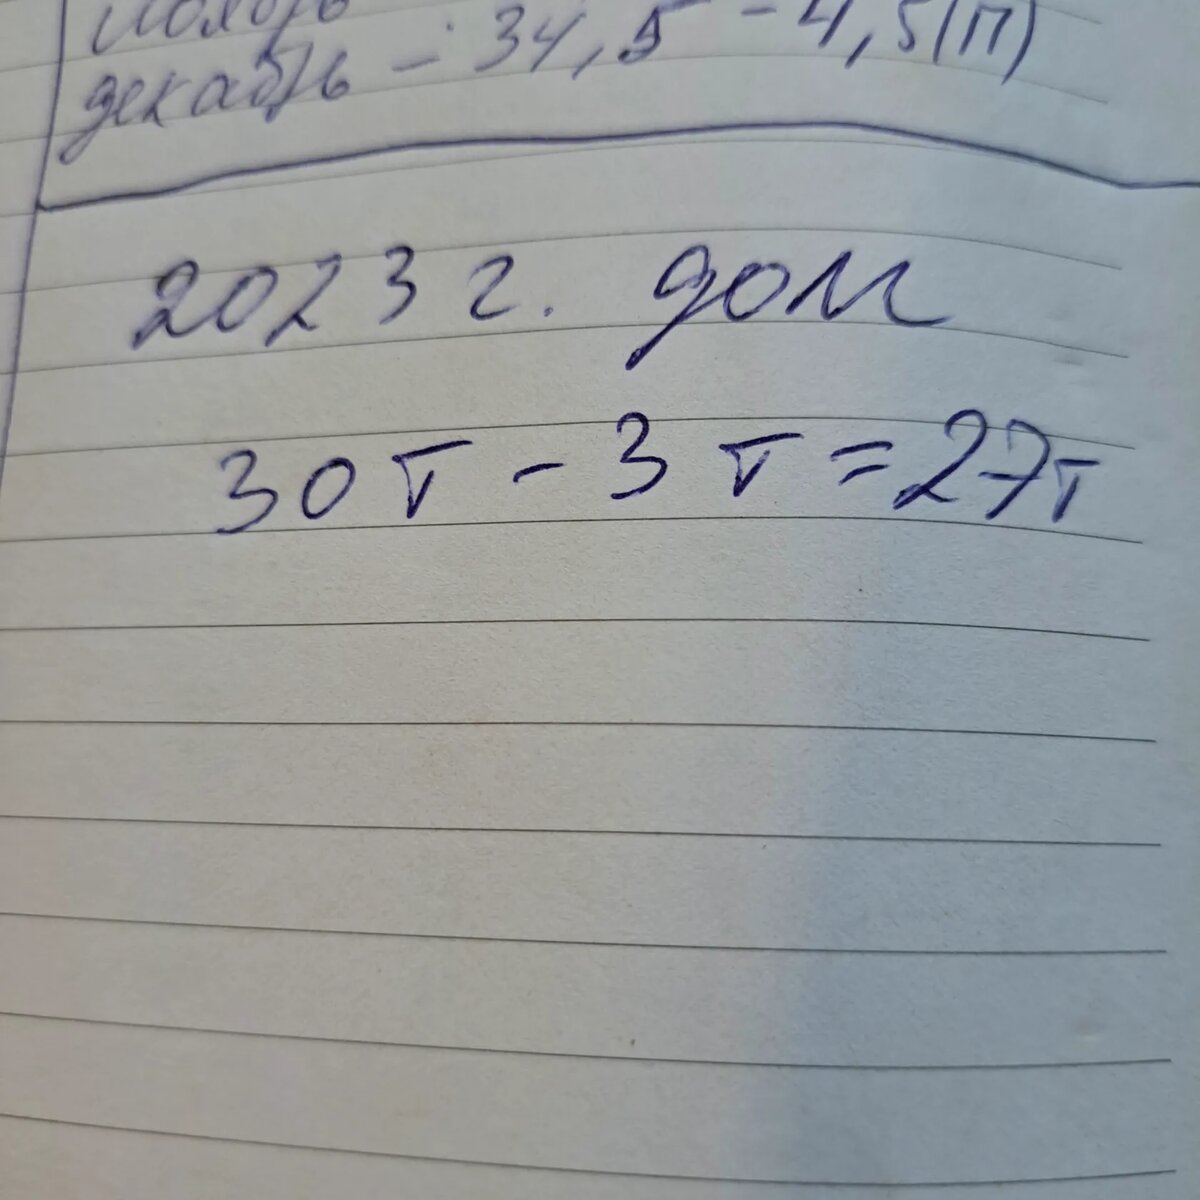 ноябрь
декабрь - 34,5 - 4,5(П)
2023 г. дом
30 т - 3 т = 27т